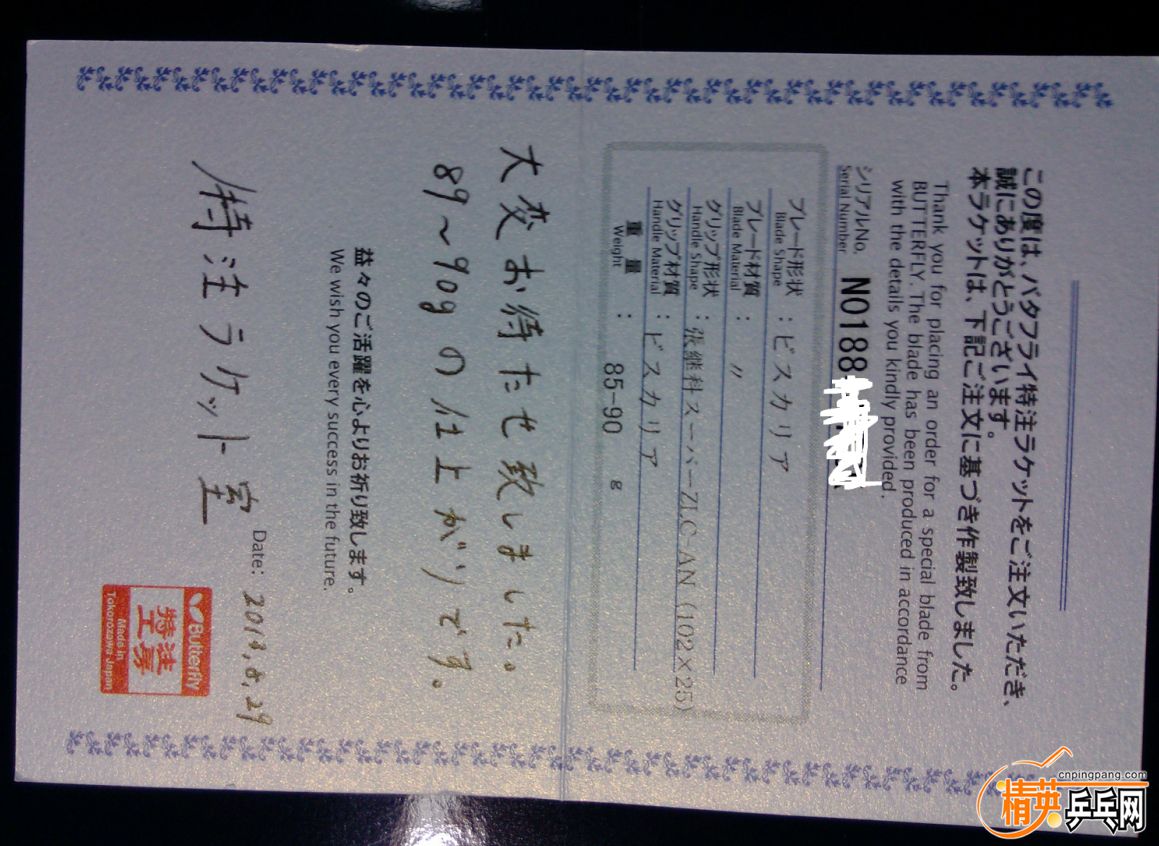 この度は、バタフライ特注ラケットをご注文いただき、
誠にありがとうございます。
本ラケットは、下記ご注文に基づき作製致しました。
Thank you for placing an order for a special blade from
BUTTERFLY. The blade has been produced in accordance
with the details you kindly provided.
シリアルNo.
Serial Number
NO188
ブレード形状 : ビスカリア
Blade Shape
ブレード材質 : 〃
Blade Material
グリップ形状 : 張継科スーパーZLC-AN (102×25)
Handle Shape
グリップ材質 : ビスカリア
Handle Material
重量 : 85-90 g
Weight
大変お待たせ致しました。
89~90gの仕上がりです。
益々のご活躍を心よりお祈り致します。
We wish you every success in the future.
特注ラケット室
Date: 2013.8.29
Butterfly
特注
工房
Made in
Tokorozawa Japan
cnpingpang.com
精英乒乓网